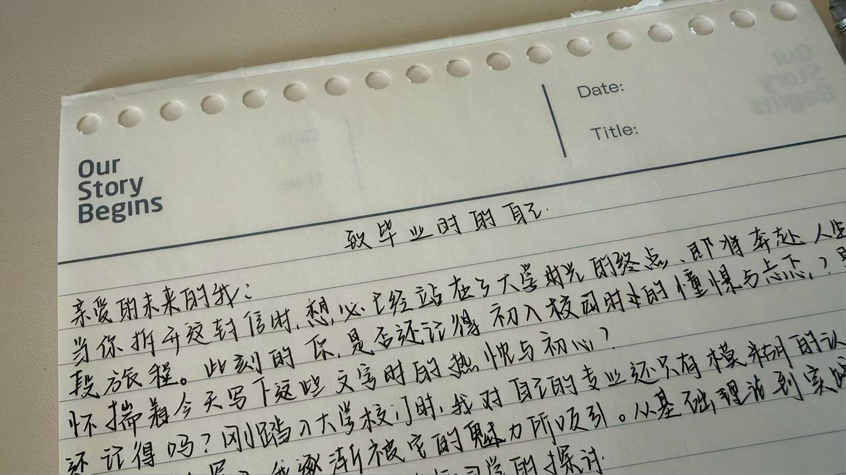 Our
Story
Begins
Date:
Title:
致毕业时的自己
亲爱的未来的我:
当你拆开这封信时,想必已经站在了大学时光的终点、即将奔赴人生
段旅程。此刻的你,是否还记得初入校园时的憧憬与忐忑,?
怀揣着今天写下这些文字时的热忱与初心?
还记得吗?刚踏入大学校门时,我对自己的专业还只有模糊的认
我逐渐被它的魅力所吸引。从基础理论到实
学的探讨